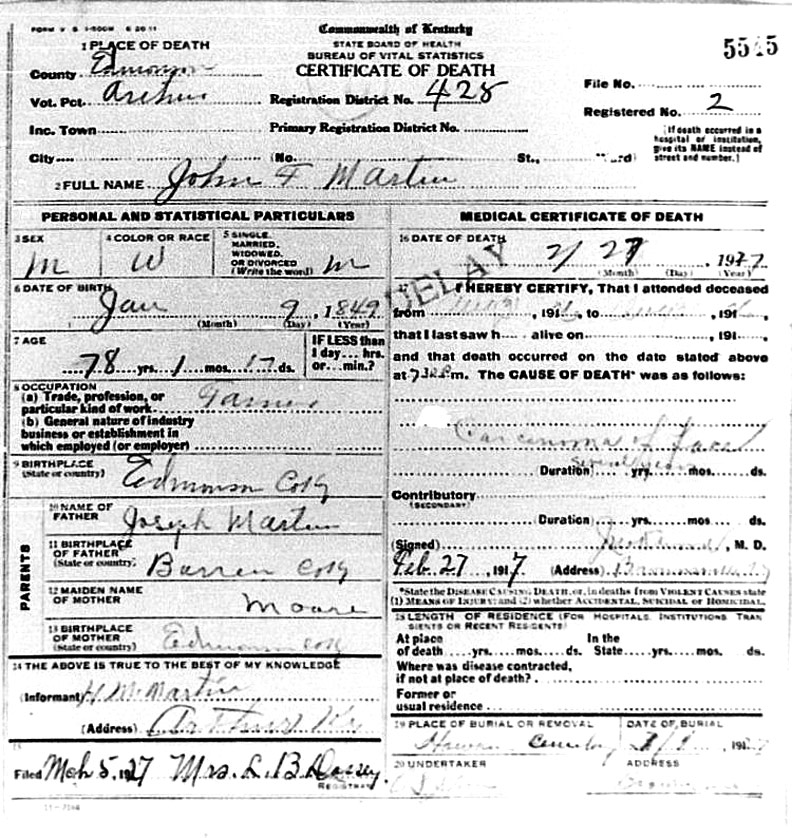 Commonwealth of Kentucky
STATE BOARD OF HEALTH
BUREAU OF VITAL STATISTICS
CERTIFICATE OF DEATH
5515
1 PLACE OF DEATH
County Edmonson
Vot. Pct. Arthur
Inc. Town
City
Registration District No. 428
Primary Registration District No.
(No. St., Ward)
File No.
Registered No. 2
[If death occurred in a hospital or institution, give its NAME instead of street and number.]
2 FULL NAME John F Martin
PERSONAL AND STATISTICAL PARTICULARS
3 SEX
M
4 COLOR OR RACE
W
5 SINGLE, MARRIED, WIDOWED, OR DIVORCED
(Write the word) M
6 DATE OF BIRTH
Jan 9, 1849
(Month) (Day) (Year)
7 AGE
78 yrs. 1 mos. 17 ds.
IF LESS than
1 day... hrs.
or... min.?
8 OCCUPATION
(a) Trade, profession, or
particular kind of work Farmer
(b) General nature of industry
business or establishment in
which employed (or employer)
9 BIRTHPLACE
(State or country) Edmonson Co Ky
PARENTS
10 NAME OF
FATHER Joseph Martin
11 BIRTHPLACE
OF FATHER
(State or country) Barren Co Ky
12 MAIDEN NAME
OF MOTHER Moore
13 BIRTHPLACE
OF MOTHER
(State or country) Edmonson Co Ky
14 THE ABOVE IS TRUE TO THE BEST OF MY KNOWLEDGE
(Informant) H M Martin
(Address) Arthur Ky
15
Filed Mch 5, 1927 Mrs. L. B. Dossey
REGISTRAR
MEDICAL CERTIFICATE OF DEATH
16 DATE OF DEATH
2/27, 1927
(Month) (Day) (Year)
DELAY
17 I HEREBY CERTIFY, That I attended deceased
from 191 to , 191
that I last saw h alive on , 191
and that death occurred on the date stated above
at 7 30 m. The CAUSE OF DEATH* was as follows:
Carcinoma of face
several years
(Duration) yrs. mos. ds.
Contributory
(SECONDARY)
(Duration) yrs. mos. ds.
(Signed) , M. D.
Feb. 27, 1917 (Address) Brownsville Ky
*State the DISEASE CAUSING DEATH, or, in deaths from VIOLENT CAUSES state
(1) MEANS OF INJURY; and (2) whether ACCIDENTAL, SUICIDAL or HOMICIDAL.
18 LENGTH OF RESIDENCE (FOR HOSPITALS, INSTITUTIONS, TRANSIENTS OR RECENT RESIDENTS)
At place
of death yrs. mos. ds.
In the
State yrs. mos. ds.
Where was disease contracted,
if not at place of death?
Former or
usual residence
19 PLACE OF BURIAL OR REMOVAL
Cemetery
DATE OF BURIAL
20 UNDERTAKER
ADDRESS